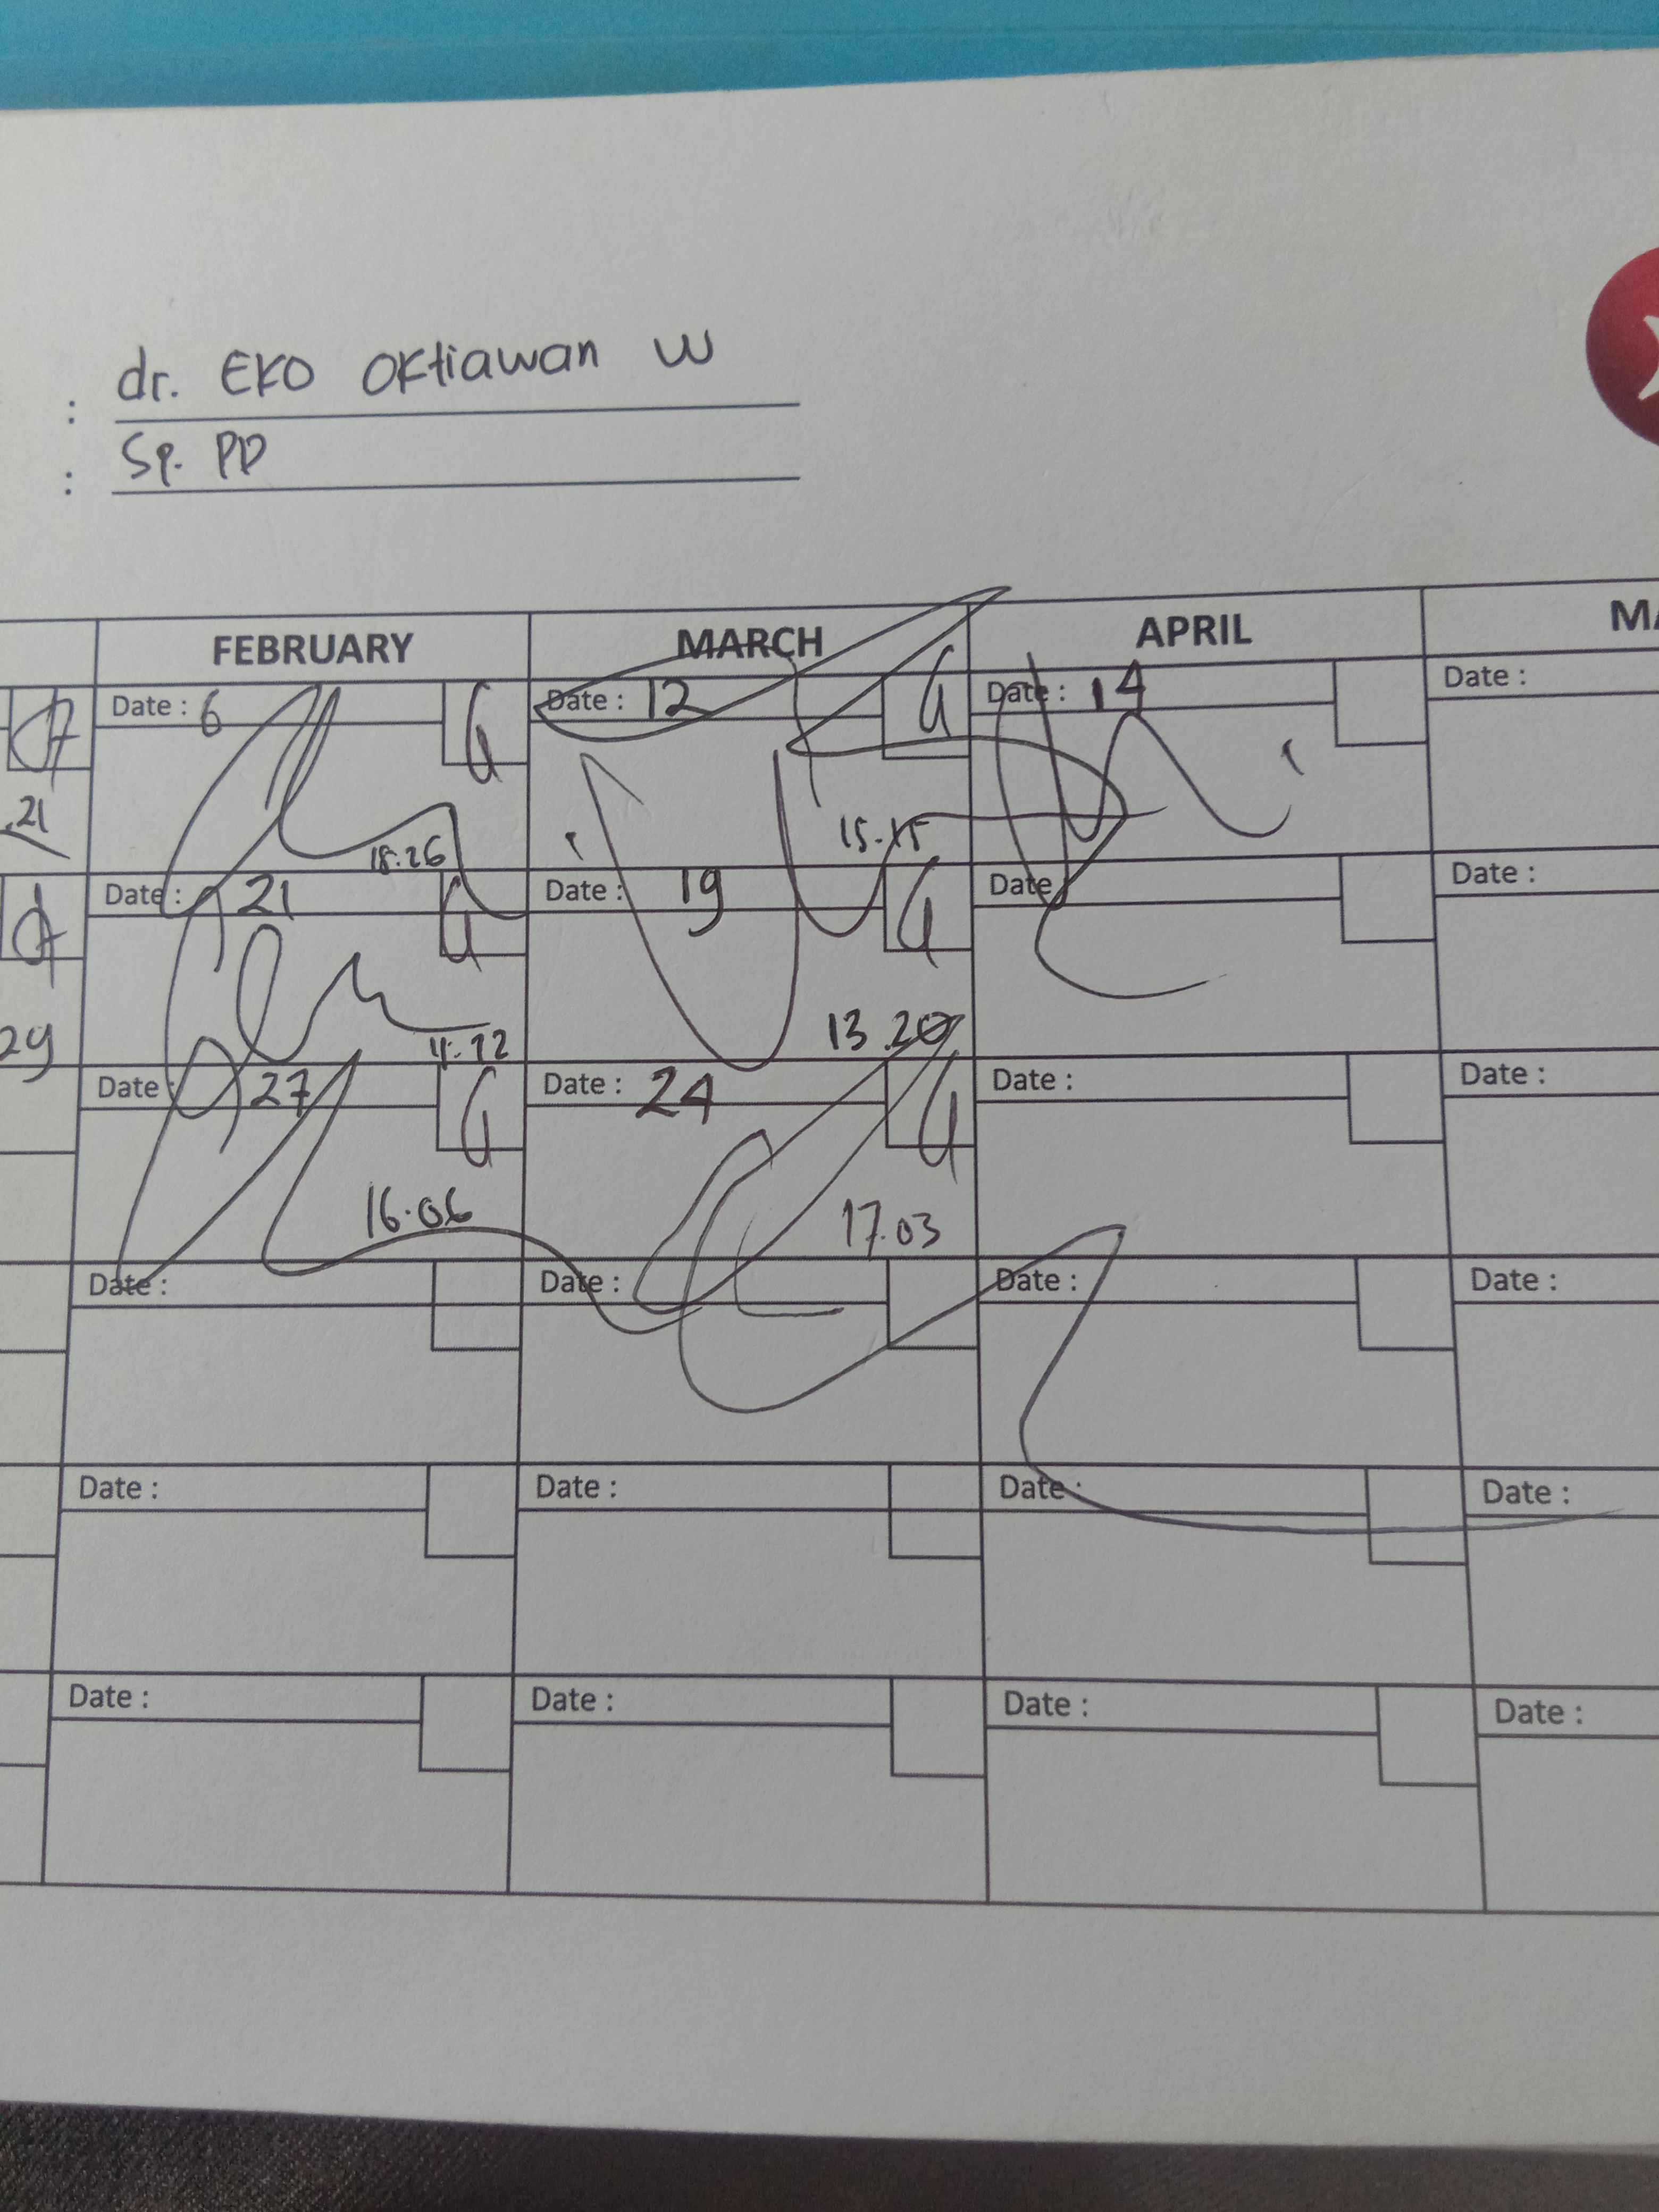 : dr. EKO Oktiawan W
: Sp. PD
FEBRUARY MARCH APRIL
Date : 6 Date : 12 Date : 14 Date :
.21 18.26 15.15
Date : 21 Date : 19 Date Date :
29 13.20
Date : 27 Date : 24 Date : Date :
16.06 17.03
Date : Date : Date : Date :
Date : Date : Date : Date :
Date : Date : Date : Date :